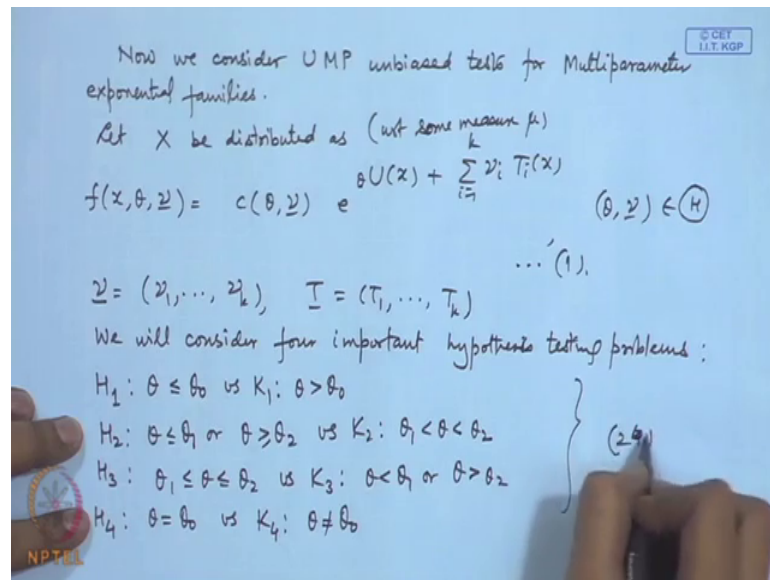 © CET
I.I.T. KGP
Now we consider UMP unbiased tests for Multiparameter
exponential families.
Let X be distributed as (wrt some measure μ)
f(x, θ, ν̲) = c(θ, ν̲) e^{θU(x) + Σ_{i=1}^{k} ν_i T_i(x)} (θ, ν̲) ∈ Ⓗ
...(1).
ν̲ = (ν_1, ..., ν_k), T̲ = (T_1, ..., T_k)
We will consider four important hypothesis testing problems :
H_1 : θ ≤ θ_0 vs K_1 : θ > θ_0
H_2 : θ ≤ θ_1 or θ ≥ θ_2 vs K_2 : θ_1 < θ < θ_2
H_3 : θ_1 ≤ θ ≤ θ_2 vs K_3 : θ < θ_1 or θ > θ_2
H_4 : θ = θ_0 vs K_4 : θ ≠ θ_0
NPTEL